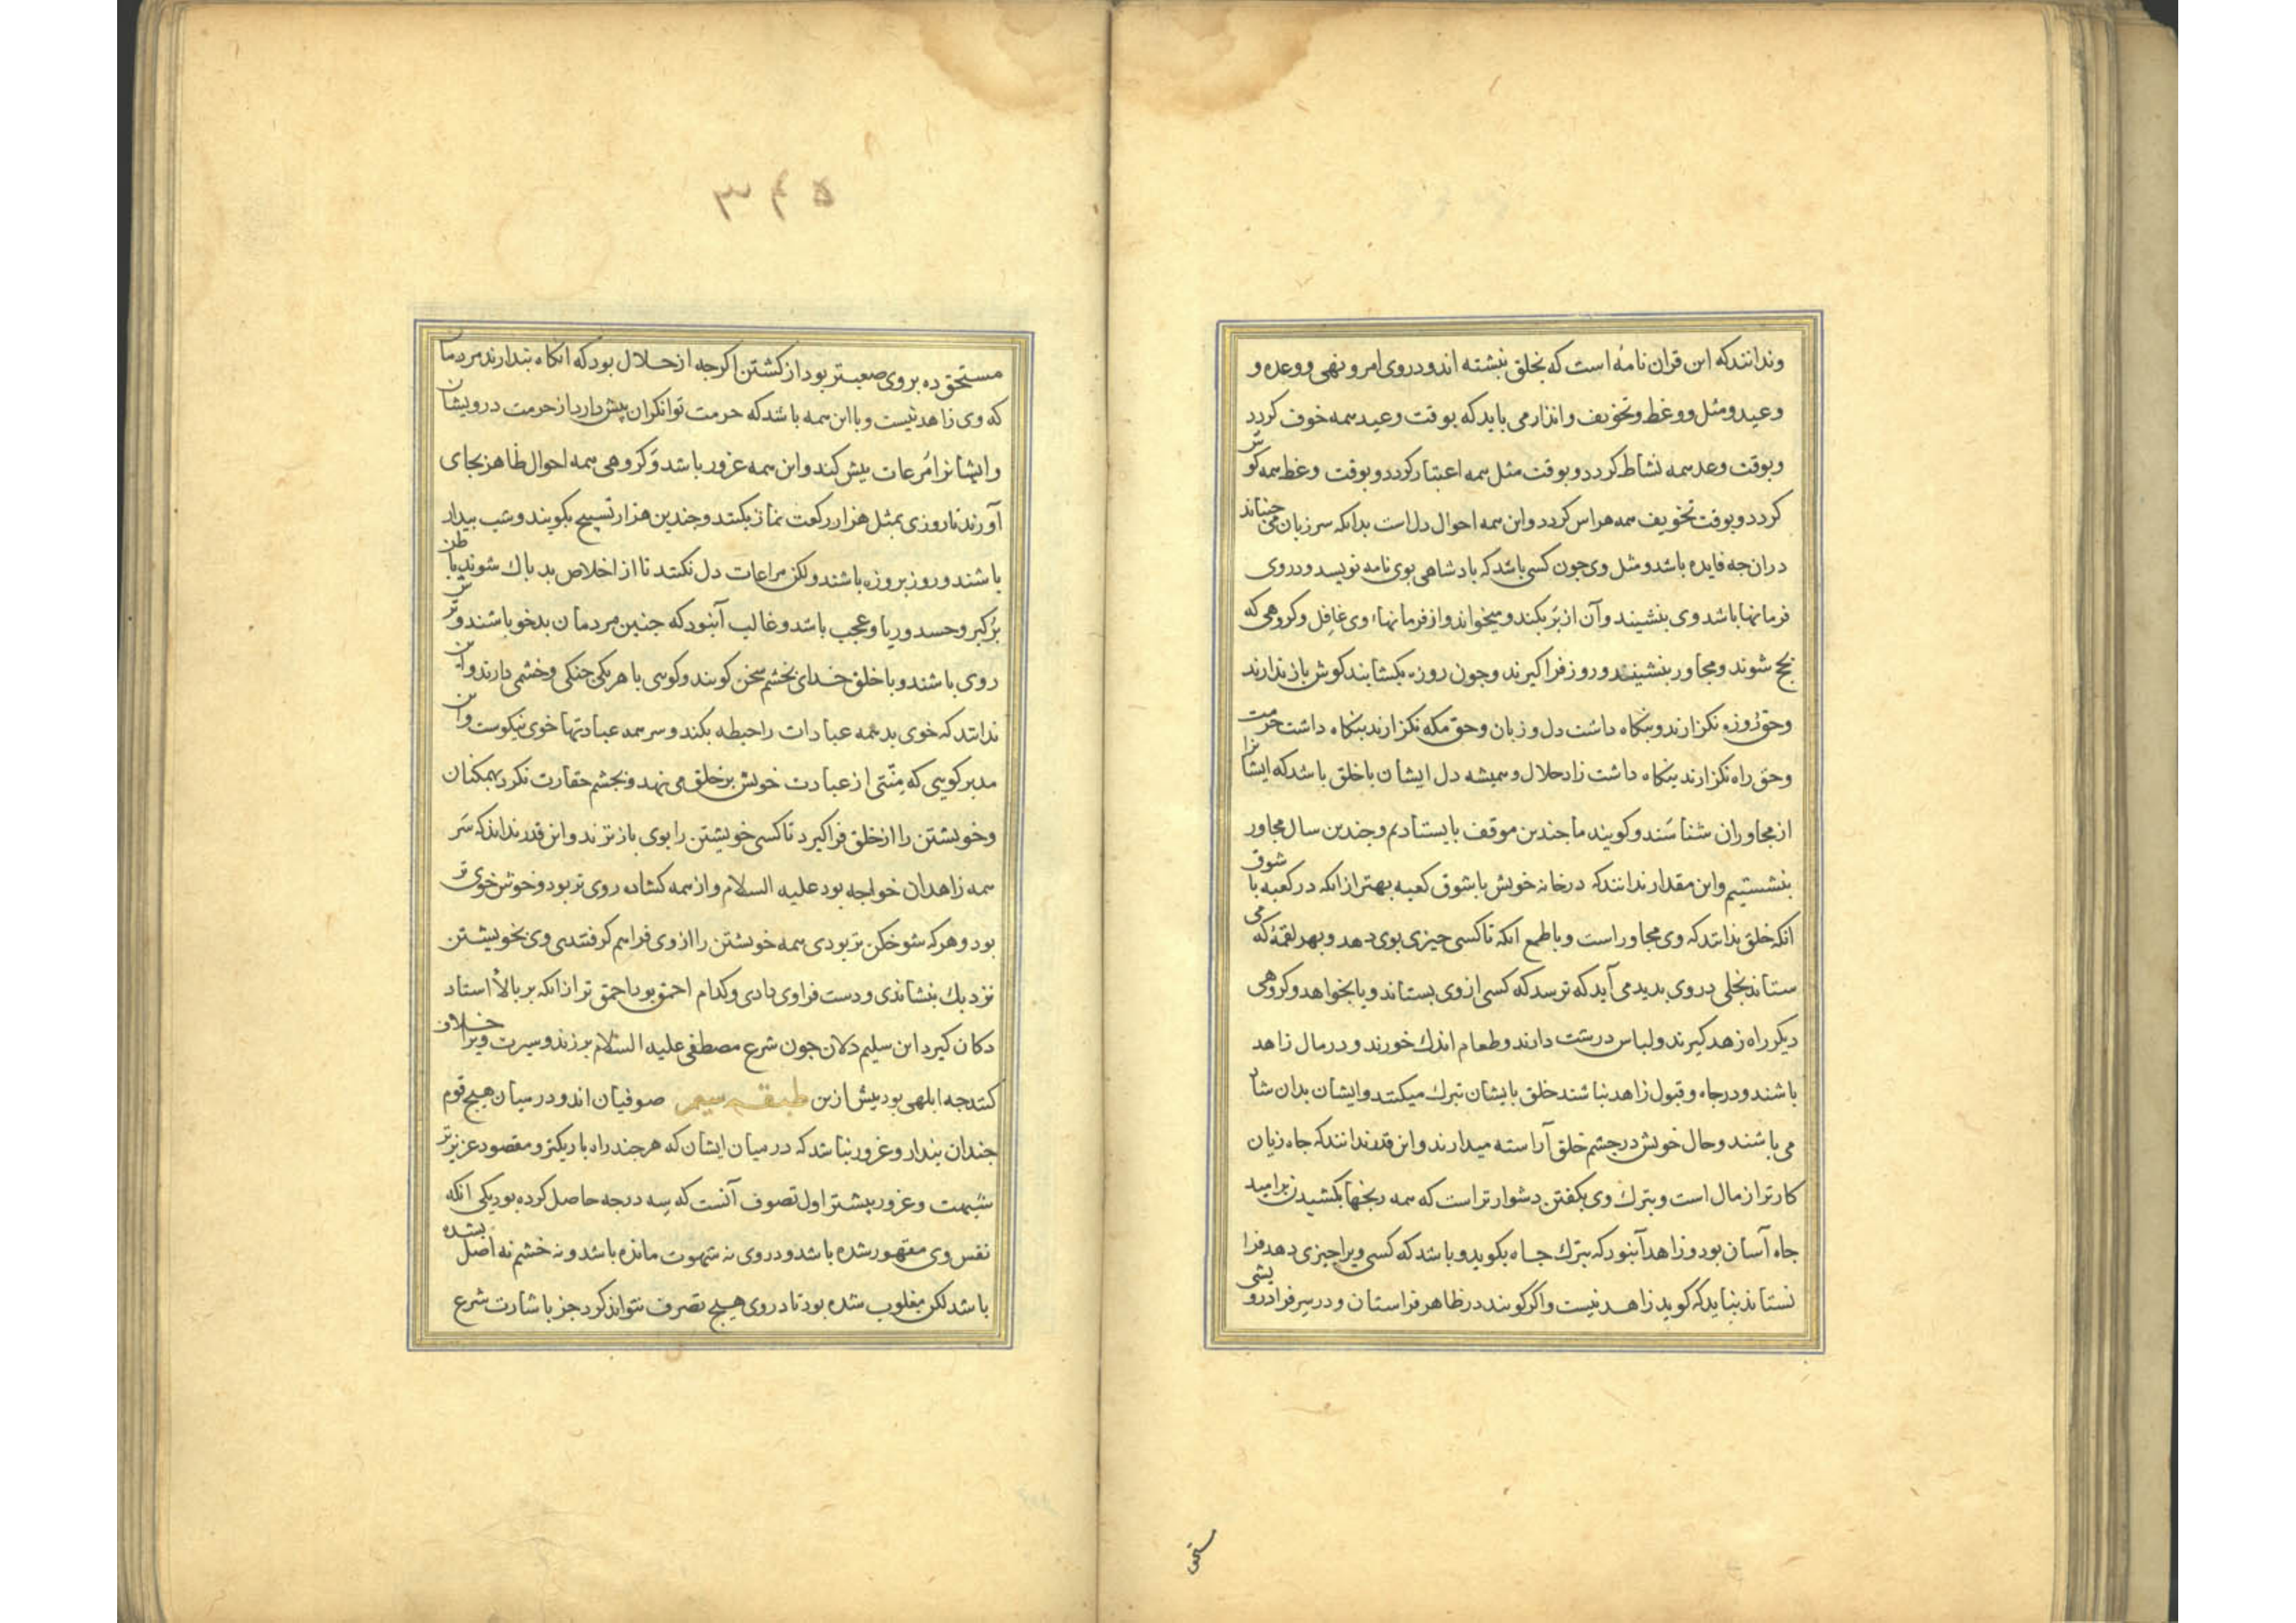 وندانند که این قران نامهٔ است که بخلق نبشته اند و در وی امر و نهی و وعده و
وعید و مثل و وعظ و تخویف و انذار می باید که بوقت وعید همه خوف کردد
و بوقت وعد همه نشاط کردد و بوقت مثل همه اعتبار کردد و بوقت وعظ همه کوش
کردد و بوقت تخویف همه هراس کردد و این همه احوال دل است بدانکه سر زبان می جنباند
دران جه فایده باشد و مثل وی جون کسی باشد که بادشاهی بوی نامه نویسد و در وی
فرمانها باشد وی بنشیند و آن از بر بکند و میخواند و از فرمانهاء وی غافل و کروهی که
بحج شوند و مجاور بنشینند و روزه فراکیرند و جون روزه بکشایند کوش باز ندارند
و حق روزه نکزارند و بنکاه داشت دل و زبان و حق مکه نکزارند بنکاه داشت حرمت
و حق راه نکزارند بنکاه داشت زاد حلال و همیشه دل ایشان با خلق باشد که ایشانرا
از مجاوران شناسند و کویند ما جندین موقف بایستادیم و جندین سال مجاور
بنشستیم و این مقدار ندانند که در خانه خویش با شوق کعبه بهتر از انکه در کعبه با شوق
انکه خلق بدانند که وی مجاور است و با طمع انکه تا کسی جیزی بوی دهد و بهر لقمهٔ که می
ستاند بخلی در وی بدید می آید که ترسد که کسی از وی بستاند و یا بخواهد و کروهی
دیکر راه زهد کیرند و لباس درشت دارند و طعام اندك خورند و در مال زاهد
باشند و در جاه و قبول زاهد نباشند خلق بایشان تبرك میکنند و ایشان بدان شاد
می باشند و حال خویش در جشم خلق آراسته میدارند و این قدر ندانند که جاه زیان
کارتر از مال است و بترك وی بکفتن دشوارتر است که همه رنجها بکشیدن بر امید
جاه آسان بود و زاهد آنبود که بترك جاه بکوید و باشد که کسی ویرا جیزی دهد فرا
نستاند نباید که کوید زاهد نیست و اکر کویند در ظاهر فراستان و در سر فرا درویشی
مستحق
۳۴۵
مستحق ده بر وی صعبتر بود از کشتن اکرجه از حلال بود که انکاه بندارند مردمان
که وی زاهد نیست و با این همه باشد که حرمت توانکران بیش دارد از حرمت درویشان
و ایشانرا مراعات بیش کند و این همه غرور باشد و کروهی همه احوال ظاهر بجای
آورند تا روزی بمثل هزار رکعت نماز بکنند و جندین هزار تسبیح بکویند و شب بیدار
باشند و روز بروزه باشند و لکن مراعات دل نکنند تا از اخلاص بد باك شوند باطن
بر کبر و حسد و ریا و عجب باشد و غالب آنبود که جنین مردمان بدخو باشند و ترش
روی باشند و با خلق خدای بخشم سخن کویند و کویی با هر یکی جنکی و خشمی دارند و این
ندانند که خوی بد همه عبادات را حبطه بکند و سر همه عبادتها خوی نیکوست و این
مدبر کویی که منتی از عبادت خویش بر خلق می نهد و بجشم حقارت نکرد بهمکنان
و خویشتن را از خلق فراکیرد تا کسی خویشتن را بوی باز نزند و این قدر نداند که سر
همه زاهدان خواجه بود علیه السلام و از همه کشاده روی تر بود و خوش خوی تر
بود و هر که شوخکن تر بودی همه خویشتن را از وی فراهم کرفتندی وی بخویشتن
نزدیك بنشاندی و دست فرا وی دادی و کدام احمق بود احمق تر از انکه بر بالاء استاد
دکان کیرد این سلیم دلان جون شرع مصطفی علیه السلام برزند و سیرت ویرا خلاف
کنند جه ابلهی بود بیش ازین طبقه سیم صوفیان اند و در میان هیج قوم
جندان بندار و غرور نباشد که در میان ایشان که هر جند راه باریکتر و مقصود عزیزتر
شبهت و غرور بیشتر اول تصوف آنست که سه درجه حاصل کرده بود یکی انکه
نفس وی مقهور شده باشد و در وی نه شهوت مانده باشد و نه خشم نه اصل بشده
باشد لکن مغلوب شده بود تا در وی هیج تصرف نتواند کرد جز باشارت شرع